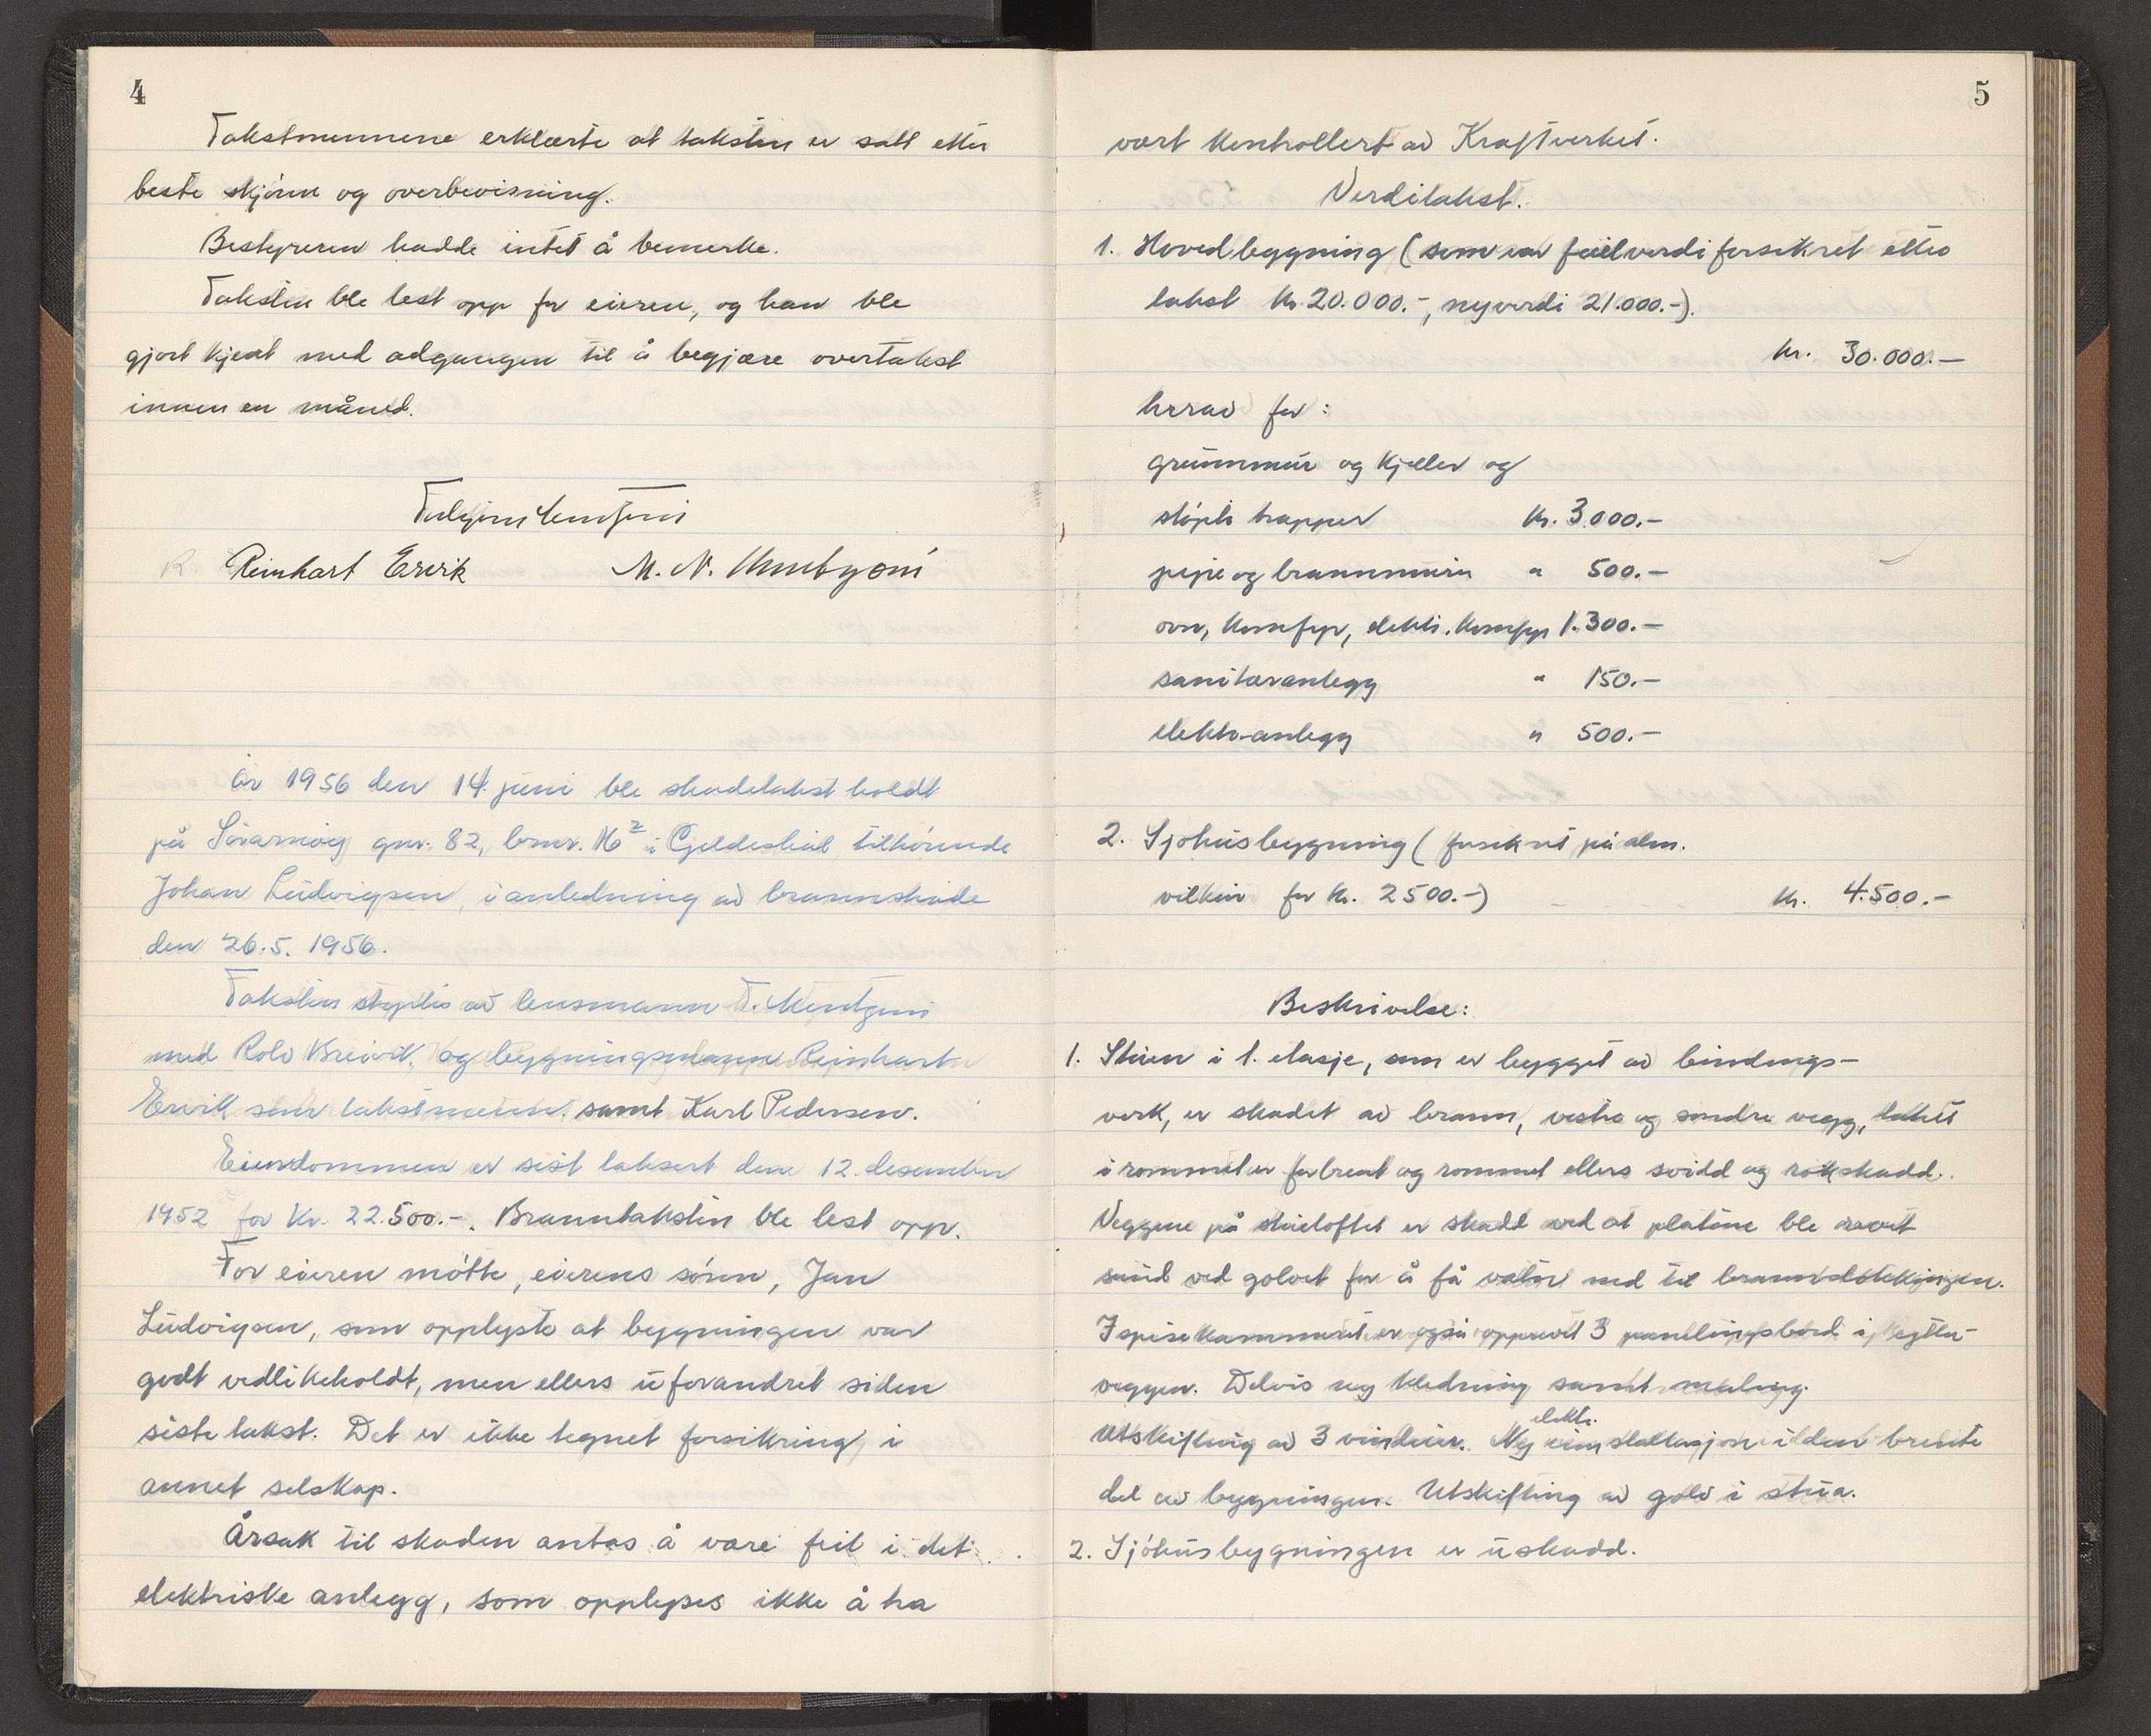 4
Takstmennene erklærte at taksten er satt etter
beste skjønn og overbevisning.
Bestyreren hadde intet å bemerke.
Taksten ble lest opp for eieren, og han ble
gjort kjent med adgangen til å begjære overtakst
innen en måned.
Reinhart Ervik M. N.
År 1956 den 14. juni ble skadetakst holdt
på gnr. 82, brnr. 16² i Gildeskål tilhørende
Johan Ludvigsen, i anledning av brannskade
den 26.5. 1956.
Taksten styrtes av lensmann T.
med Rolv Breivik, og bygningsmann Reinhart
Ervik som takstmenn. samt Karl Pedersen.
Eiendommen er sist taksert den 12. desember
1952 for Kr. 22.500.-. Branntaksten ble lest opp.
For eieren møtte, eierens sønn, Jan
Ludvigsen, som opplyste at bygningen var
godt vedlikeholdt, men ellers uforandret siden
siste takst. Det er ikke tegnet forsikring i
annet selskap.
Årsak til skaden antas å være feil i det
elektriske anlegg, som opplyses ikke å ha
5
vært kontrollert av Kraftverket.
Verditakst.
1. Hovedbygning (som var fullverdiforsikret etter
takst kr. 20.000.-, nyverdi 21.000.-).
kr. 30.000.-
herav for:
grunnmur og kjeller og
støpte trapper kr. 3.000.-
pipe og brannmurer " 500.-
ovn, komfyr, elektr. komfyr 1.300.-
sanitæranlegg " 150.-
elektr.anlegg " 500.-
2. Sjøhusbygning (forsikret på alm.
vilkår for kr. 2500.-) kr. 4.500.-
Beskrivelse:
1. Stuen i 1. etasje, som er bygget av bindings-
verk, er skadet av brann, vestre og søndre vegg, taket
i rommet er forbrent og rommet ellers svidd og røkskadd.
Veggene på stueloftet er skadd ved at platene ble revet
sund ved golvet for å få vatn ned til brannslokkingen.
I spisekammeret er også opprevet 3 panelingsbord i ytter-
veggen. Delvis ny kledning samt maling.
Utskifting av 3 vinduer. Ny elektr. installasjon i den brente
del av bygningen. Utskifting av golv i stua.
2. Sjøhusbygningen er uskadd.